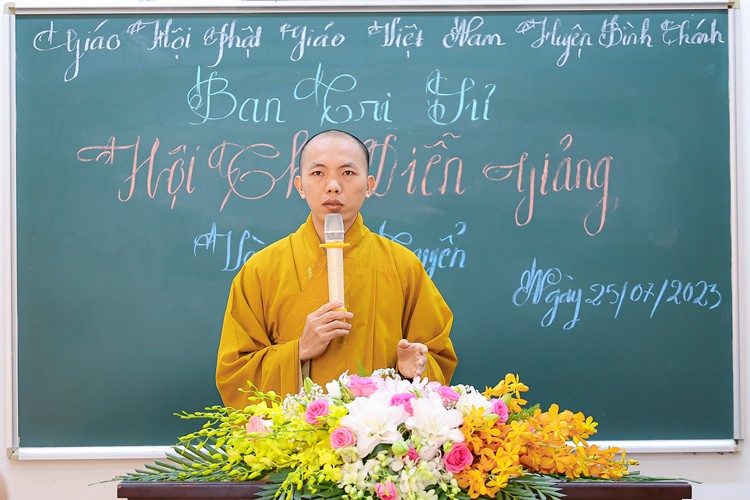 Giáo Hội Phật Giáo Việt Nam Huyện Bình Chánh
Ban Trị Sự
Hội Thi Diễn Giảng
Vòng Tuyển
Ngày 25/07/2023